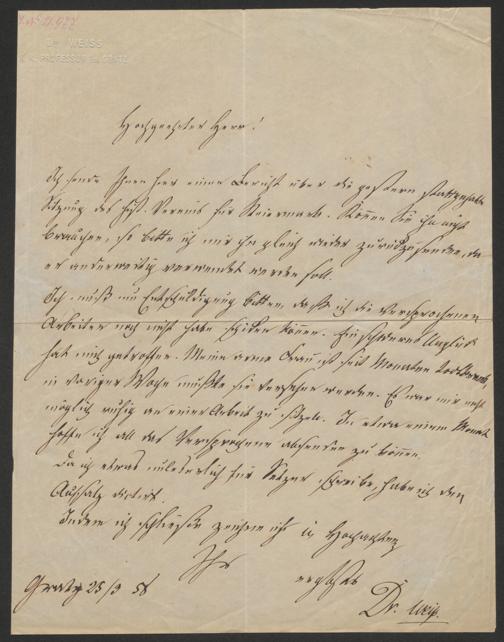 Dr WEISS
K. K. PROFESSOR IN GRATZ
Hochgeehrter Herr!
Ich sende Ihnen hier einen Bericht über die gestern stattgehabte
Sitzung des hist. Vereins für Steiermark. Können Sie ihn nicht
brauchen, so bitte ich mir ihn gleich wieder zurückzusenden, da
er anderweitig verwendet werden soll.
Ich muß um Entschuldigung bitten, daß ich die versprochenen
Arbeiten noch nicht habe schicken können. Ein schweres Unglück
hat mich getroffen. Meine arme Frau ist seit Monaten todtkrank,
in voriger Woche mußte sie versehen werden. Es war mir nicht
möglich ruhig an einer Arbeit zu sitzen. In etwa einem Monat
hoffe ich all das Versprochene absenden zu können.
Da ich etwas unleserlich für Setzer schreibe, habe ich den
Aufsatz dictirt.
Indem ich schließe zeichne ich in Hochachtung
Ihr
ergebenster
Gratz 23/3 58
Dr. Weiß.